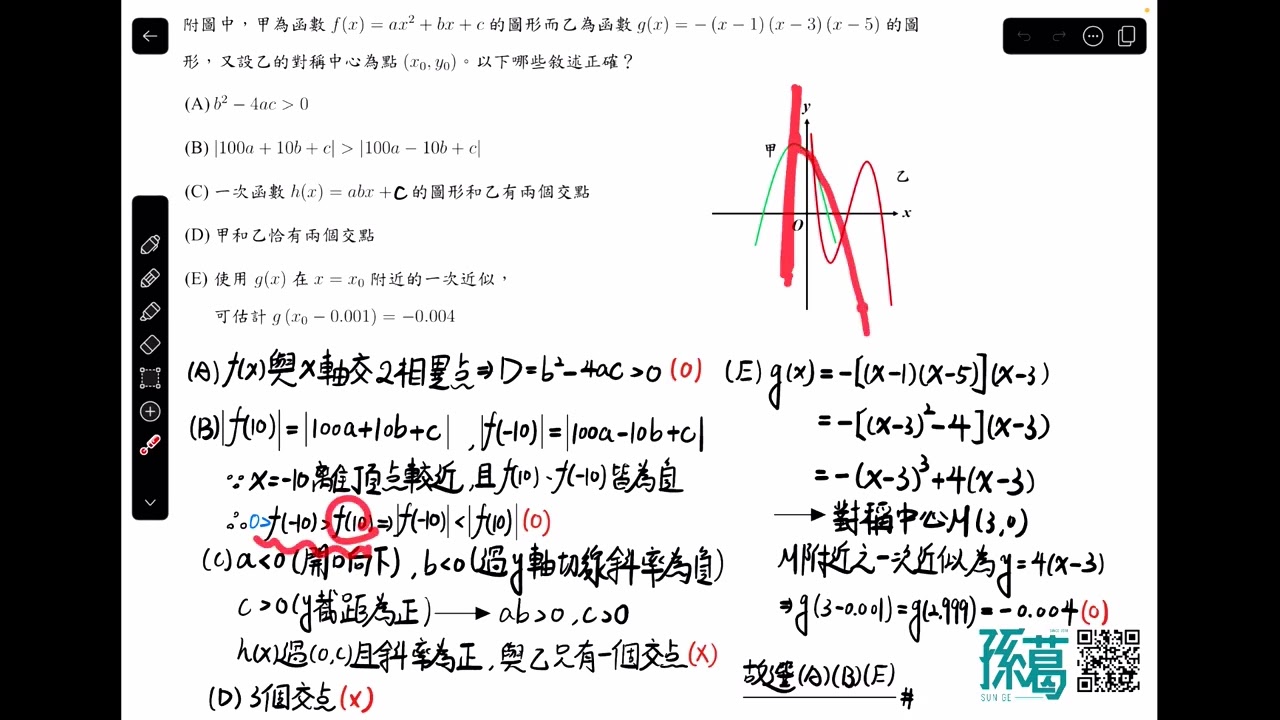 附圖中,甲為函數 f(x) = ax² + bx + c 的圖形而乙為函數 g(x) = −(x−1)(x−3)(x−5) 的圖
形,又設乙的對稱中心為點 (x₀, y₀)。以下哪些敘述正確?
(A) b² − 4ac > 0
(B) |100a + 10b + c| > |100a − 10b + c|
(C) 一次函數 h(x) = abx + c 的圖形和乙有兩個交點
(D) 甲和乙恰有兩個交點
(E) 使用 g(x) 在 x = x₀ 附近的一次近似,
可估計 g(x₀ − 0.001) = −0.004
y
甲
乙
x
O
(A) f(x)與x軸交2相異点⇒D=b²−4ac>0 (O)
(B) |f(10)|=|100a+10b+c|, |f(-10)|=|100a-10b+c|
∵x=-10離頂点較近,且f(10)、f(-10)皆為負
∴0>f(-10)>f(10)⇒|f(-10)|<|f(10)| (O)
(C) a<0(開口向下), b<0(過y軸切線斜率為負)
c>0(y截距為正)→ab>0, c>0
h(x)過(0,c)且斜率為正,與乙只有一個交点(X)
(D) 3個交点(X)
(E) g(x)=-[(x-1)(x-5)](x-3)
=-[(x-3)²-4](x-3)
=-(x-3)³+4(x-3)
→對稱中心M(3,0)
M附近之一次近似為y=4(x-3)
⇒g(3-0.001)=g(2.999)=-0.004(O)
故選(A)(B)(E)
#
孫葛
SUN GE